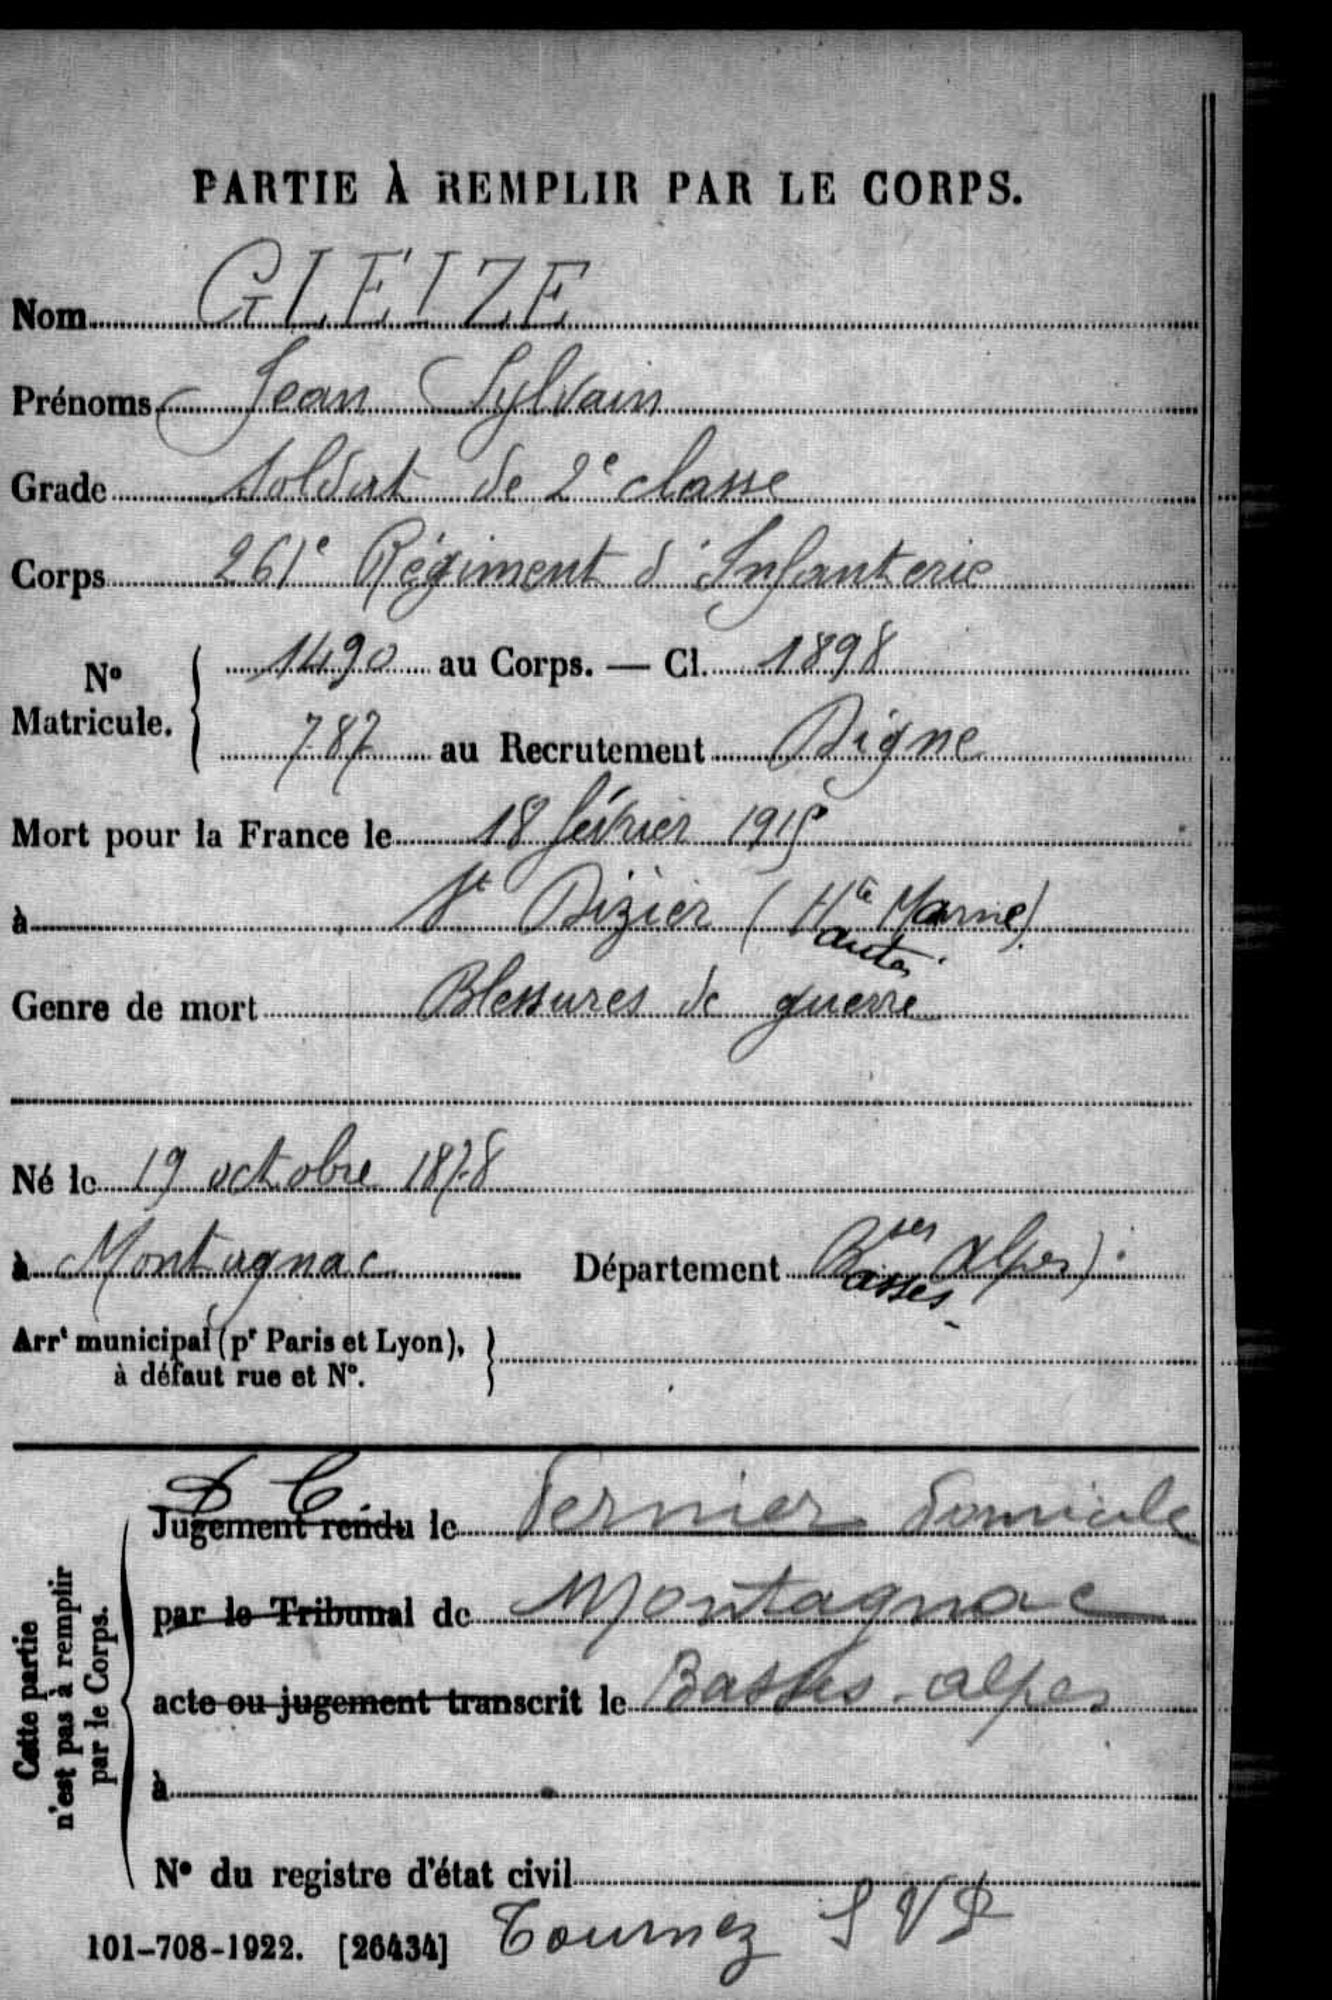 PARTIE À REMPLIR PAR LE CORPS.
Nom GLEIZE
Prénoms Jean Sylvain
Grade Soldat de 2e classe
Corps 261e Régiment d'Infanterie
No Matricule. { 1490 au Corps. — Cl. 1898
787 au Recrutement Digne
Mort pour la France le 18 février 1915
à St Dizier (Hte Marne)
aute
Genre de mort Blessures de guerre
Né le 19 octobre 1878
à Montagnac Département Bses Alpes).
asses-
Arrt municipal (pr Paris et Lyon), }
à défaut rue et No.
D C
Jugement rendu le dernier domicile
par le Tribunal de Montagnac
acte ou jugement transcrit le Basses-alpes
à
No du registre d'état civil
Cette partie
n'est pas à remplir
par le Corps.
101-708-1922. [26434] Tournez SVP